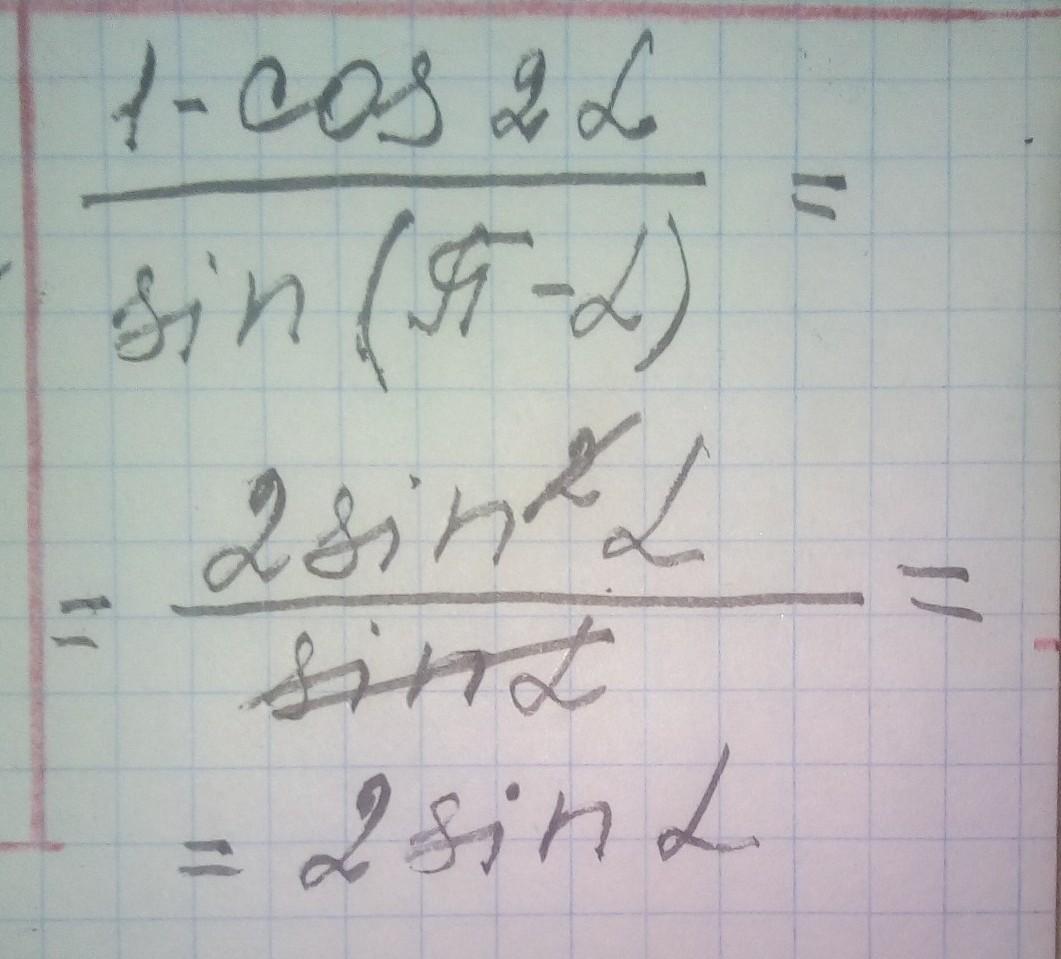 1-cos 2α
sin(π-α) =
= 2sin²α
sinα =
= 2sinα